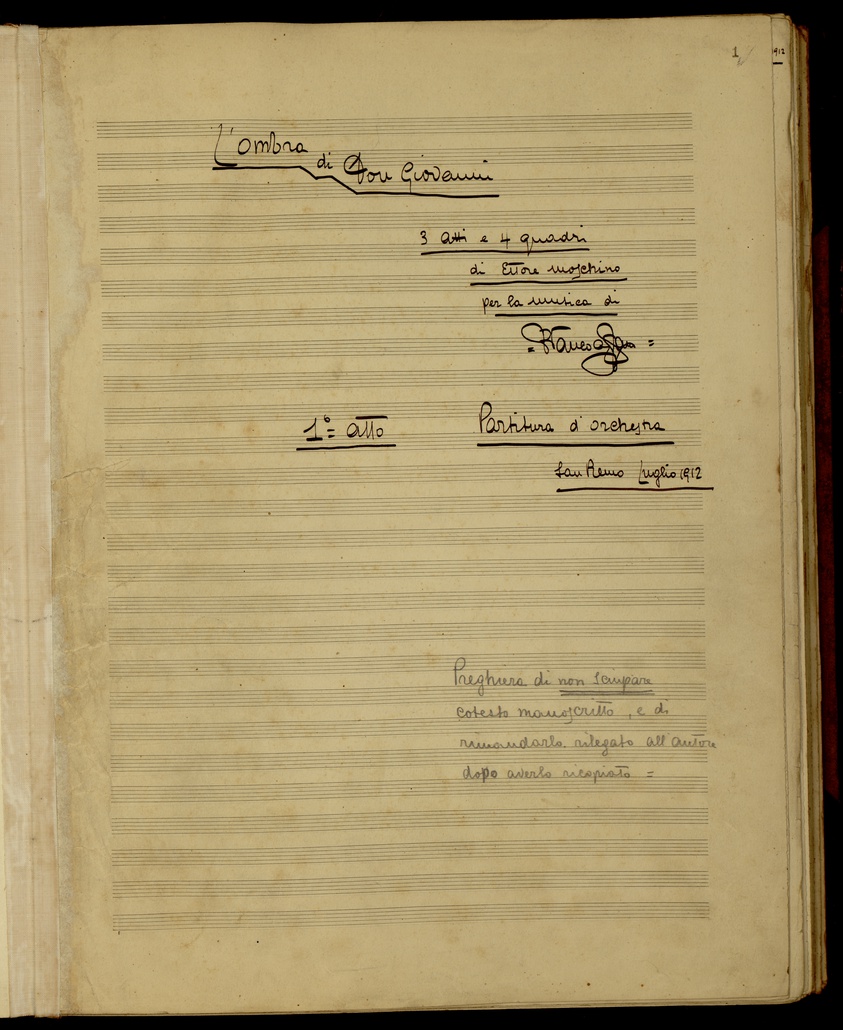 1
1912
L'ombra di Don Giovanni
3 atti e 4 quadri
di Ettore Moschino
per la musica di
= Franco Alfano =
1º= atto
Partitura d'orchestra
San Remo Luglio 1912
Preghiera di non sciupare
cotesto manoscritto, e di
rimandarlo rilegato all'autore
dopo averlo ricopiato =